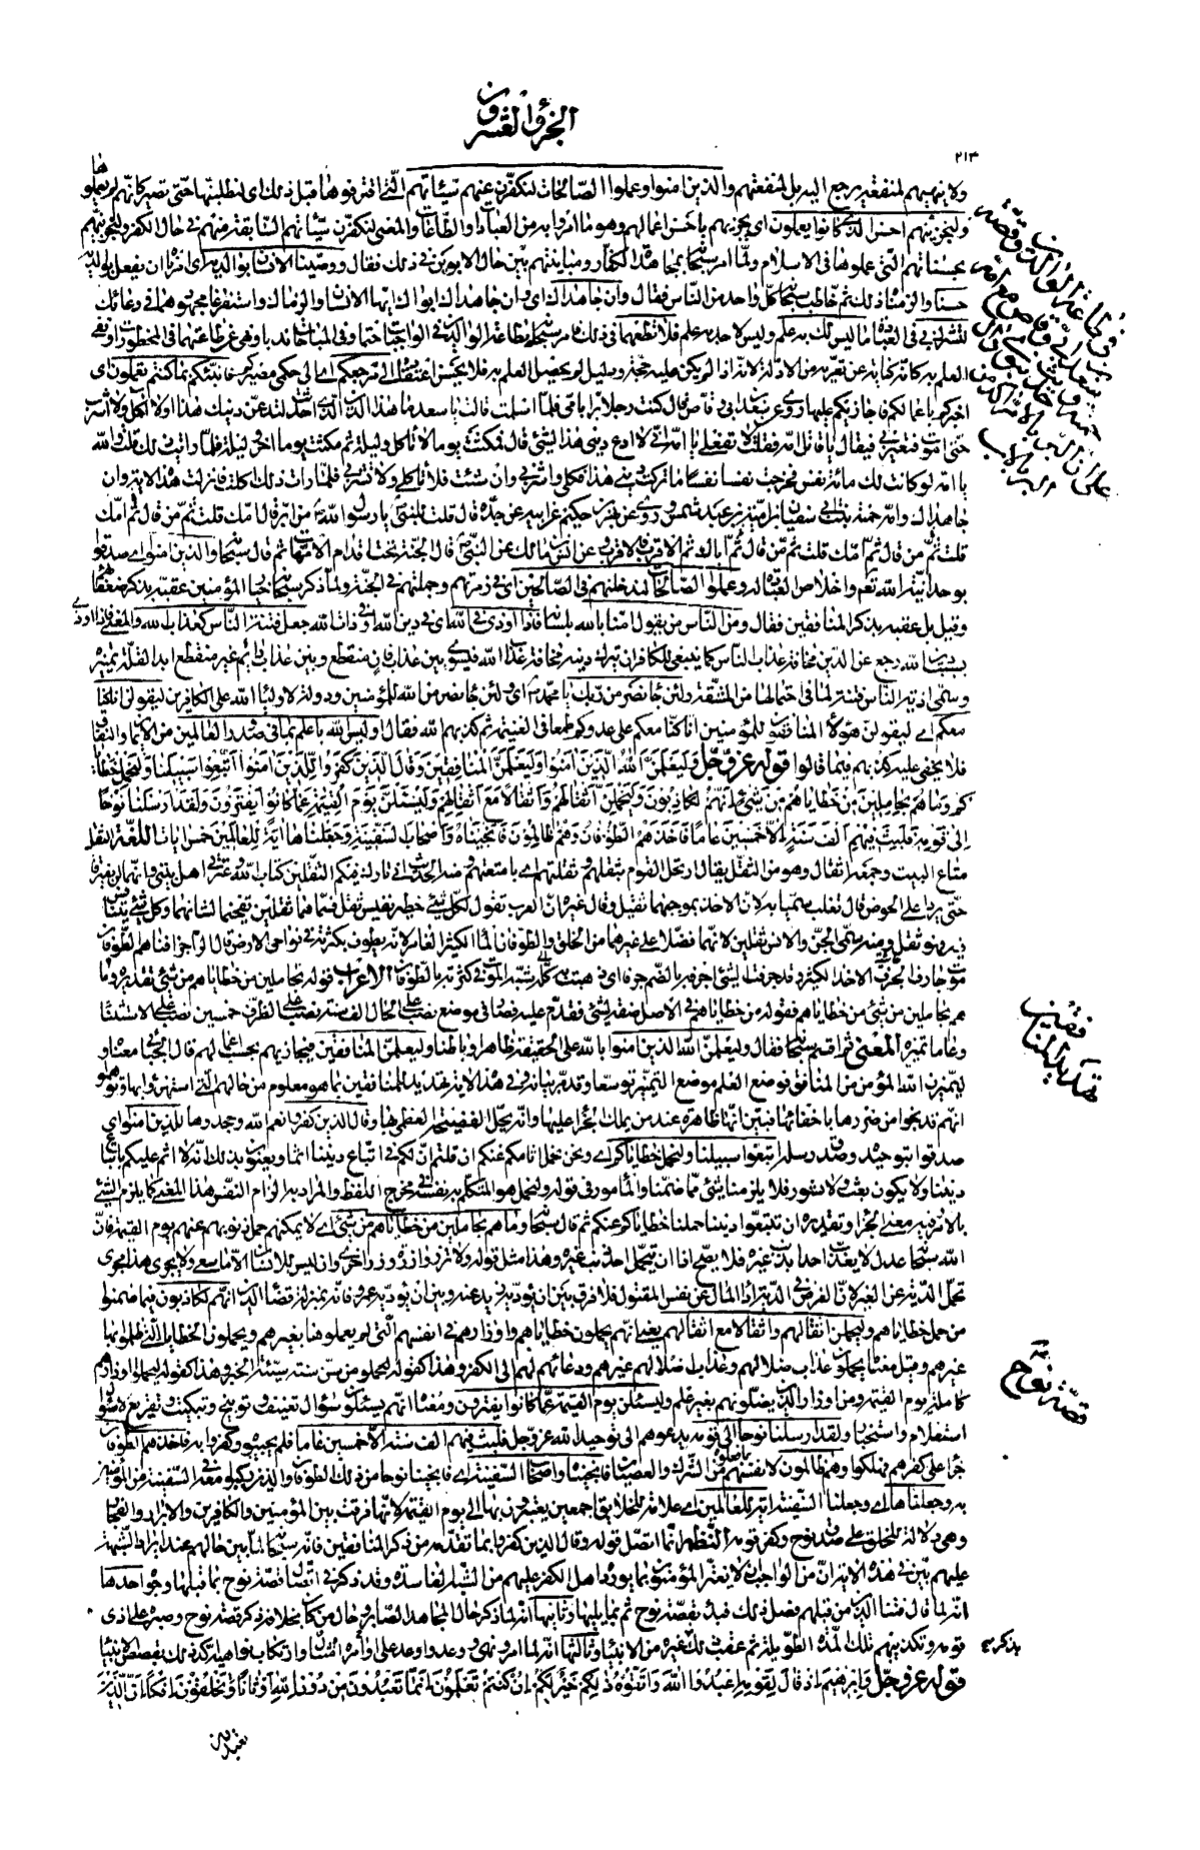 الجزؤ العشرون
٢١٣
ولا ينهيهم لمنفعته يرجع اليه بل لمنفعتهم والذين امنوا وعملوا الصالحات لنكفرن عنهم سيئاتهم التي اقترفوها قبل ذلك اى لنطلبنها حتى تصير كانهم لم يعملوها
ولنجزينهم احسن الذى كانوا يعملون اى يجزيهم باحسن اعمالهم وهو ما امروا به من العبادات والطاعات والمعنى لنكفرن سيئاتهم السابقة منهم فى حال الكفر ولنجزينهم
بحسناتهم التى عملوها فى الاسلام ولما امر سبحانه بمجاهدة الكفار ومباينتهم بين حال الابوين فى ذلك فقال ووصينا الانسان بوالديه اى امرناه ان يفعل بوالديه
حسنا والزمناه ذلك ثم خاطب سبحانه كل واحد من الناس فقال وان جاهداك اى وان جاهداك ابواك ايها الانسان والزماك واستفرغا مجهودهما فى دعائك
لتشرك بى فى العبادة ما ليس لك به علم وليس لاحد به علم فلا تطعهما فى ذلك فامر سبحانه بطاعة الوالدين فى الواجبات حتما وفى المباحات ندبا ونهى عن طاعتهما فى المحظورات ونفى
العلم به كانه كناية عن تعريه من الادلة لانه اذا لم يكن عليه حجة ودليل لم يحصل العلم به فلا يحسن اعتقاده الى مرجعكم اى الى حكمى مصيركم فانبئكم بما كنتم تعملون اى
اخبركم باعمالكم فاجازيكم عليها وروى عن سعد بن ابى وقاص قال كنت رجلا برا بامى فلما اسلمت قالت يا سعد ما هذا الدين الذى احدثت لتدعن دينك هذا او لا اكل ولا اشرب
حتى اموت فتعير بى فيقال يا قاتل امه فقلت لا تفعلى يا امه انى لا ادع دينى هذا لشئ قال فمكثت يوما لا تاكل وليلة ثم مكثت يوما اخر وليلة فلما رايت ذلك قلت والله
يا امه لو كانت لك مائة نفس فخرجت نفسا نفسا ما تركت دينى هذا فكلى واشربى وان شئت فلا تاكلى ولا تشربى فلما رات ذلك اكلت فنزلت هذه الاية وان
جاهداك وامه حمنة بنت ابى سفيان بن امية بن عبد شمس وروى عن بهز بن حكيم عن ابيه عن جده قال قلت للنبى يا رسول الله من ابر قال امك قلت ثم من قال ثم امك
قلت ثم من قال ثم امك قلت ثم من قال ثم اباك ثم الاقرب فالاقرب وعن انس بن مالك عن النبى قال الجنة تحت اقدام الامهات ثم قال سبحانه والذين امنوا اى صدقوا
بوحدانية الله تعم واخلاص العبادة له وعملوا الصالحات لندخلنهم فى الصالحين اى فى زمرتهم وجملتهم فى الجنة ولما ذكر سبحانه خيار المؤمنين عقبه بذكر ضعفائهم
وقيل بل عقبه بذكر المنافقين فقال ومن الناس من يقول امنا بالله بلسانه فاذا اوذى فى الله اى فى دين الله او فى ذات الله جعل فتنة الناس كعذاب الله والمعنى فاذا اوذى
بسبب الله رجع عن الدين مخافة عذاب الناس كما ينبغى للكافر ان يترك دينه مخافة عذاب الله فيسوى بين عذاب فان منقطع وبين عذاب دائم غير منقطع ابدا لقلة تمييزه
وسمى اذية الناس فتنة لما فى احتمالها من المشقة ولئن جاء نصر من ربك يا محمد اى ولئن جاء نصر من الله للمؤمنين ودولة لاولياء الله على الكافرين ليقولن انا كنا
معكم اى ليقولن هؤلاء المنافقون للمؤمنين انا كنا معكم على عدوكم طمعا فى الغنيمة ثم كذبهم الله فقال اوليس الله باعلم بما فى صدور العالمين من الايمان والنفاق
فلا يخفى عليه كذبهم فيما قالوا قوله عز وجل وَلَيَعْلَمَنَّ اللهُ الَّذِينَ آمَنُوا وَلَيَعْلَمَنَّ الْمُنَافِقِينَ وَقَالَ الَّذِينَ كَفَرُوا لِلَّذِينَ آمَنُوا اتَّبِعُوا سَبِيلَنَا وَلْنَحْمِلْ خَطَايَا
كُمْ وَمَا هُمْ بِحَامِلِينَ مِنْ خَطَايَاهُمْ مِنْ شَيْءٍ إِنَّهُمْ لَكَاذِبُونَ وَلَيَحْمِلُنَّ أَثْقَالَهُمْ وَأَثْقَالًا مَعَ أَثْقَالِهِمْ وَلَيُسْئَلُنَّ يَوْمَ الْقِيٰمَةِ عَمَّا كَانُوا يَفْتَرُونَ وَلَقَدْ أَرْسَلْنَا نُوحًا
إِلَى قَوْمِهِ فَلَبِثَ فِيهِمْ أَلْفَ سَنَةٍ إِلَّا خَمْسِينَ عَامًا فَأَخَذَهُمُ الطُّوفَانُ وَهُمْ ظَالِمُونَ فَأَنْجَيْنَاهُ وَأَصْحَابَ السَّفِينَةِ وَجَعَلْنَاهَا آيَةً لِلْعَالَمِينَ خمس ايات اللغة الثقل
متاع البيت وجمعه اثقال وهو من الثقل يقال ارتحل القوم بثقلهم وثقلتهم اى بامتعتهم ومنه الحديث انى تارك فيكم الثقلين كتاب الله وعترتى اهل بيتى وانهما لن يفترقا
حتى يردا على الحوض قال ثعلب سميا به لان الاخذ بموجبهما ثقيل وقال غيره ان العرب تقول لكل شئ خطير نفيس ثقل فسماهما ثقلين تفخيما لشانهما وكل شئ يتنافس
فيه فهو ثقل ومنه سمى الجن والانس ثقلين لانهما فضلا على غيرهما من الخلق والطوفان الماء الكثير الغامر لانه يطوف بكثرته فى نواحى الارض قال الراجز افناهم الطوفان
موت جارف الجرف الاخذ الكثير وقد جرفت الشئ اجرفه بالضم جرفا اى ذهبت به كله شبه الموت فى كثرته بالطوفان الاعراب قوله بحاملين من خطاياهم من شئ تقديره وما
هم بحاملين من شئ من خطاياهم فقوله من خطاياهم فى الاصل صفة لشئ فقدم عليه فصار فى موضع نصب على الحال الف سنة نصب على الظرف خمسين نصب على الاستثناء
وعاما تمييز المعنى ثم اقسم سبحانه فقال وليعلمن الله الذين امنوا بالله على الحقيقة ظاهرا وباطنا وليعلمن المنافقين فيجازيهم بحسب اعمالهم قال الجبائى معناه و
ليميزن الله المؤمن من المنافق فوضع العلم موضع التمييز توسعا وقد مر بيانه وفى هذه الاية تهديد للمنافقين بما هو معلوم من حالهم التى استهزءوا بها وتوهموا
انهم قد نجوا من ضررها باخفائها فبين انها ظاهرة عند من يملك الجزاء عليها وانه يحل الفضيحة العظمى بها وقال الذين كفروا نعم الله وجحدوها للذين امنوا اى
صدقوا بتوحيده وصدق رسله اتبعوا سبيلنا ولنحمل خطاياكم اى ونحن نحمل اثامكم عنكم ان قلتم ان لكم فى اتباع ديننا اثما ويعنون بذلك انه لا اثم عليكم باتباع
ديننا ولا يكون بعث ولا نشور فلا يلزمنا شئ مما ضمنا والمأمور فى قوله ولنحمل هو المتكلم به نفسه فى مخرج اللفظ والمراد به الزام النفس هذا المعنى كما يلزم الشئ
بالامر وفيه معنى الجزاء وتقديره ان تتبعوا ديننا حملنا خطاياكم عنكم ثم قال سبحانه وما هم بحاملين من خطاياهم من شئ اى لا يمكنهم حمل ذنوبهم عنهم يوم القيمة فان
الله سبحانه عدل لا يعذب احدا بذنب غيره فلا يصح اذا ان يتحمل احد ذنب غيره وهذا مثل قوله ولا تزر وازرة وزر اخرى وان ليس للانسان الا ما سعى ولا يجرى هذا مجرى
تحمل الدية عن الغير لان الغرض فى الدية اداء المال عن نفس المقتول فلا فرق بين ان يؤديه زيد عنه وبين ان يؤديه عمرو فانه بمنزلة قضاء الدين انهم لكاذبون فيما ضمنوا
من حمل خطاياهم وليحملن اثقالهم واثقالا مع اثقالهم يعنى انهم يحملون خطاياهم واوزارهم فى انفسهم التى لم يعملوها بغيرهم ويحملون الخطايا التى ظلموا بها
غيرهم وقيل معناه يحملون عذاب ضلالهم وعذاب اضلالهم غيرهم ودعائهم لهم الى الكفر وهذا كقوله من سن سنة سيئة الخبر وهذا كقوله ليحملوا اوزارهم
كاملة يوم القيمة ومن اوزار الذين يضلونهم بغير علم وليسئلن يوم القيمة عما كانوا يفترون ومعناه انهم يسئلون سؤال تعنيف وتوبيخ وتبكيت وتقريع لا سؤال
استعلام واستخبار ولقد ارسلنا نوحا الى قومه يدعوهم الى توحيد الله عز وجل فلبث فيهم الف سنة الا خمسين عاما فلم يجيبوه وكفروا به فاخذهم الطوفان
جزاء على كفرهم فهلكوا وهم ظالمون لانفسهم بما فعلوه من الشرك والعصيان فانجيناه واصحاب السفينة اى فانجينا نوحا من ذلك الطوفان والذين ركبوا معه فى السفينة من المؤمنين
به وجعلناها اى وجعلنا السفينة اية للعالمين اى علامة للخلائق اجمعين يعتبرون بها الى يوم القيمة لانها فرقت بين المؤمنين والكافرين والابرار والفجار
وهى دلالة للخلق على صدق نوح وكفر قومه النظم انما اتصل قوله وقال الذين كفروا بما تقدمه من ذكر المنافقين فانه سبحانه لما بين حالهم عند ايراد الشبهة
عليهم بين فى هذه الاية ان من الواجب ان لا يغتر المؤمنون بما يورده اهل الكفر عليهم من الشبه الفاسدة وقد ذكر فى اتصال قصة نوح بما قبلها وجوه احدها
انه لما قال فتنا الذين من قبلهم فصل ذلك فبدأ بقصة نوح ثم بما يليها وثانيها انه لما ذكر حال المجاهد الصابر وحال من كان بخلافه ذكر قصة نوح وصبره على اذى
قومه وتكذيبهم تلك المدة الطويلة ثم عقب ذلك بذكر غيره من الانبياء وثالثها انه لما امر ونهى ووعد واوعد على امتثال اوامره وارتكاب نواهيه اكد ذلك بقصص الانبياء
قوله عز وجل وَإِبْرٰهِيمَ إِذْ قَالَ لِقَوْمِهِ اعْبُدُوا اللهَ وَاتَّقُوهُ ذٰلِكُمْ خَيْرٌ لَكُمْ إِنْ كُنْتُمْ تَعْلَمُونَ إِنَّمَا تَعْبُدُونَ مِنْ دُونِ اللهِ أَوْثَانًا وَتَخْلُقُونَ إِفْكًا إِنَّ الَّذِينَ
تعبدون
قصة نوح